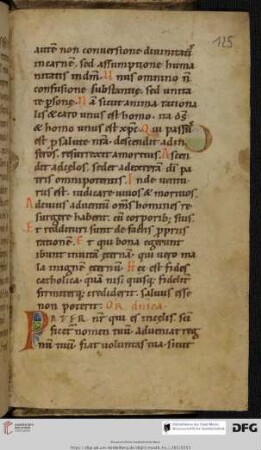 125
autem non conuersione diuinitatis
in carnem, sed assumptione huma
nitatis in dm. Unus omnino n
confusione substantie, sed unita
te psone. Na sicut anima rationa
lis & caro unus est homo. ita ds
& homo unus est xpc. Qui passus
est p salute nra. descendit ad in
feros. resurrexit a mortuis. Ascen
dit ad celos. sedet ad dexteram di pa
tris omnipotentis. Inde uentu
rus est. iudicare uiuos & mortuos.
Ad cuius aduentu oms homines re
surgere habent. cu corporib; suis.
Et reddituri sunt de factis ppriis
ratione. Et qui bona egerunt
ibunt in uita eterna. qui uero ma
la in igne eternu. Hec est fides
catholica. qua nisi quisq; fidelit
firmiterq; crediderit. saluus esse
non poterit.
PATER nr qui es in celis. sci
ficet nomen tuu. adueniat reg
nu tuu. fiat uoluntas tua. sicut
DFG